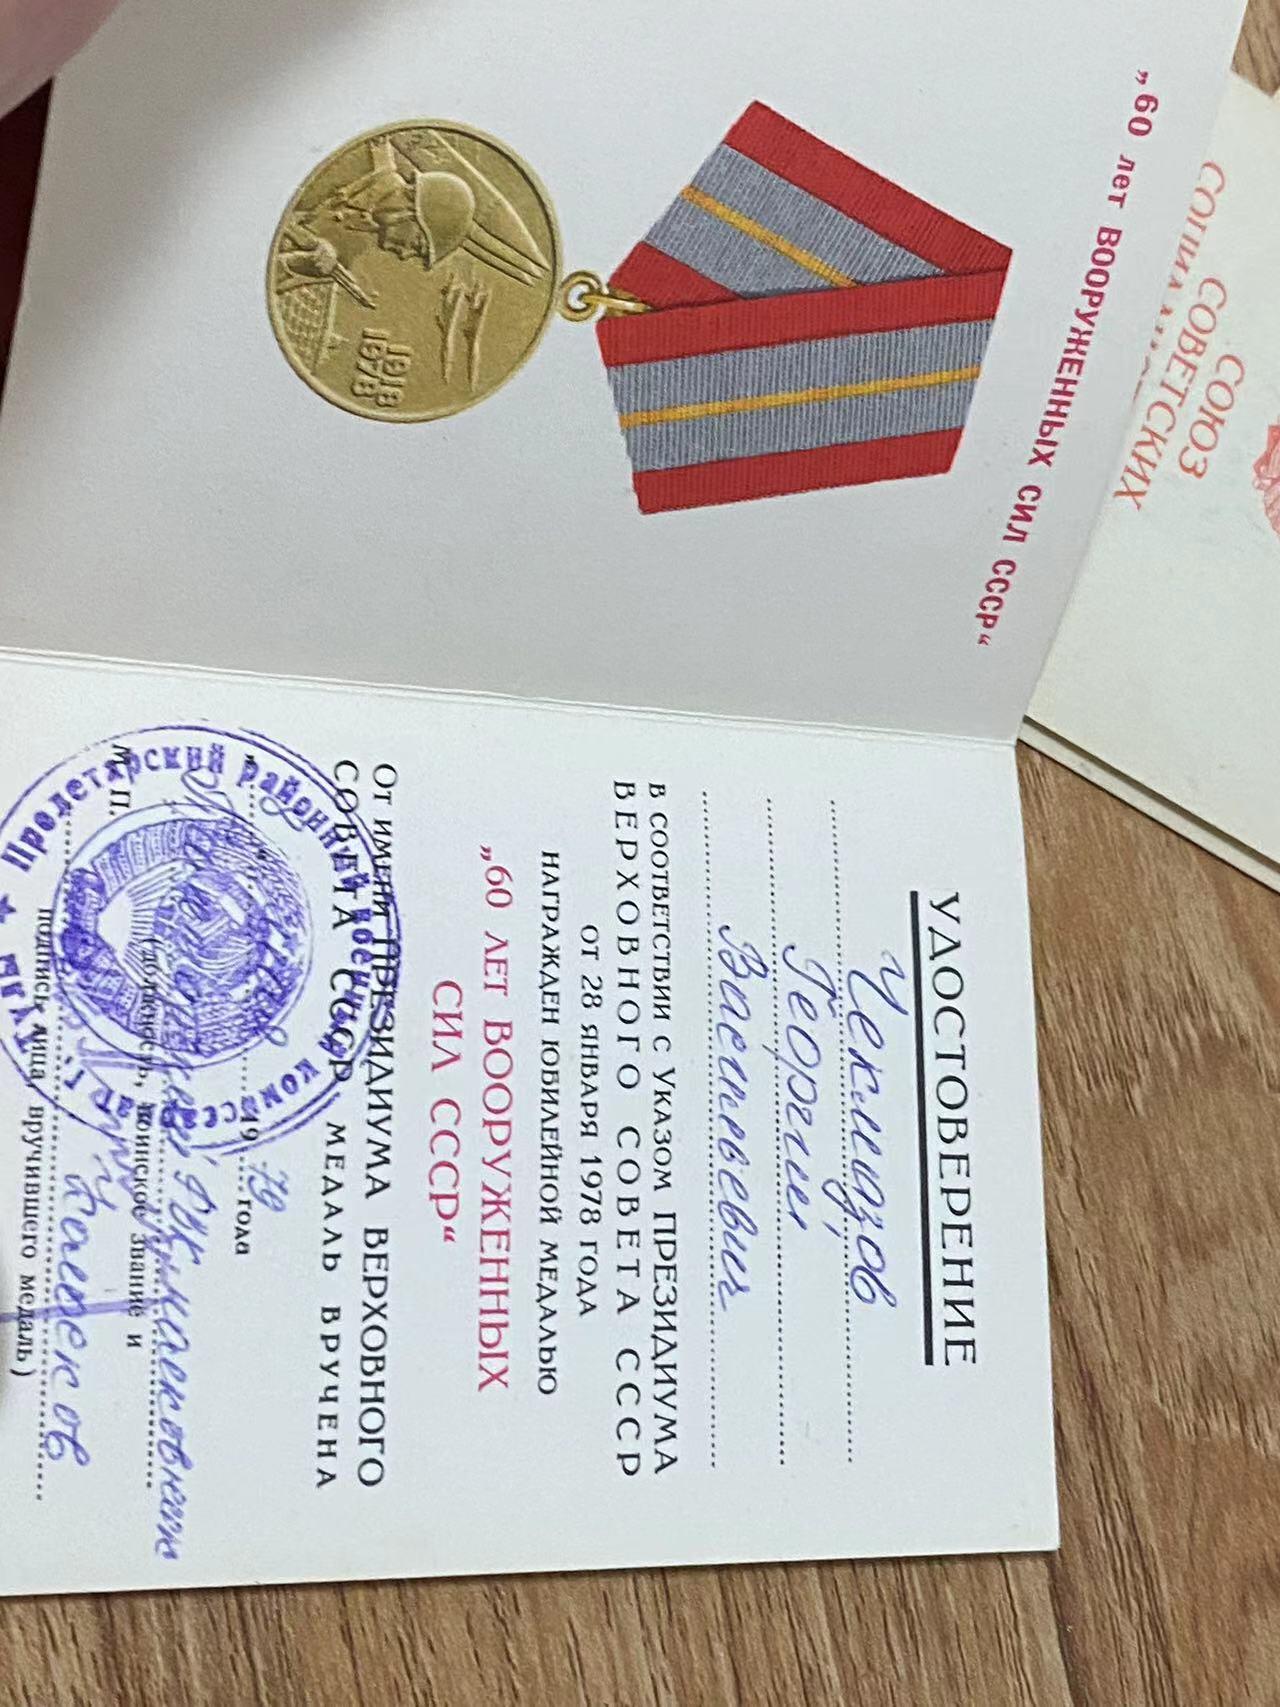 „60 лет ВООРУЖЕННЫХ СИЛ СССР“
1918
1978
УДОСТОВЕРЕНИЕ
Чекмазов
Георгий
Васильевич
В СООТВЕТСТВИИ С УКАЗОМ ПРЕЗИДИУМА
ВЕРХОВНОГО СОВЕТА СССР
ОТ 28 ЯНВАРЯ 1978 ГОДА
НАГРАЖДЕН ЮБИЛЕЙНОЙ МЕДАЛЬЮ
„60 ЛЕТ ВООРУЖЕННЫХ
СИЛ СССР“
ОТ ИМЕНИ ПРЕЗИДИУМА ВЕРХОВНОГО
СОВЕТА СССР МЕДАЛЬ ВРУЧЕНА
1979 года
М. П.
(должность, воинское звание и
подпись лица, вручившего медаль)
Пролетарский районный военный комиссариат
СОЮЗ
СОВЕТСКИХ